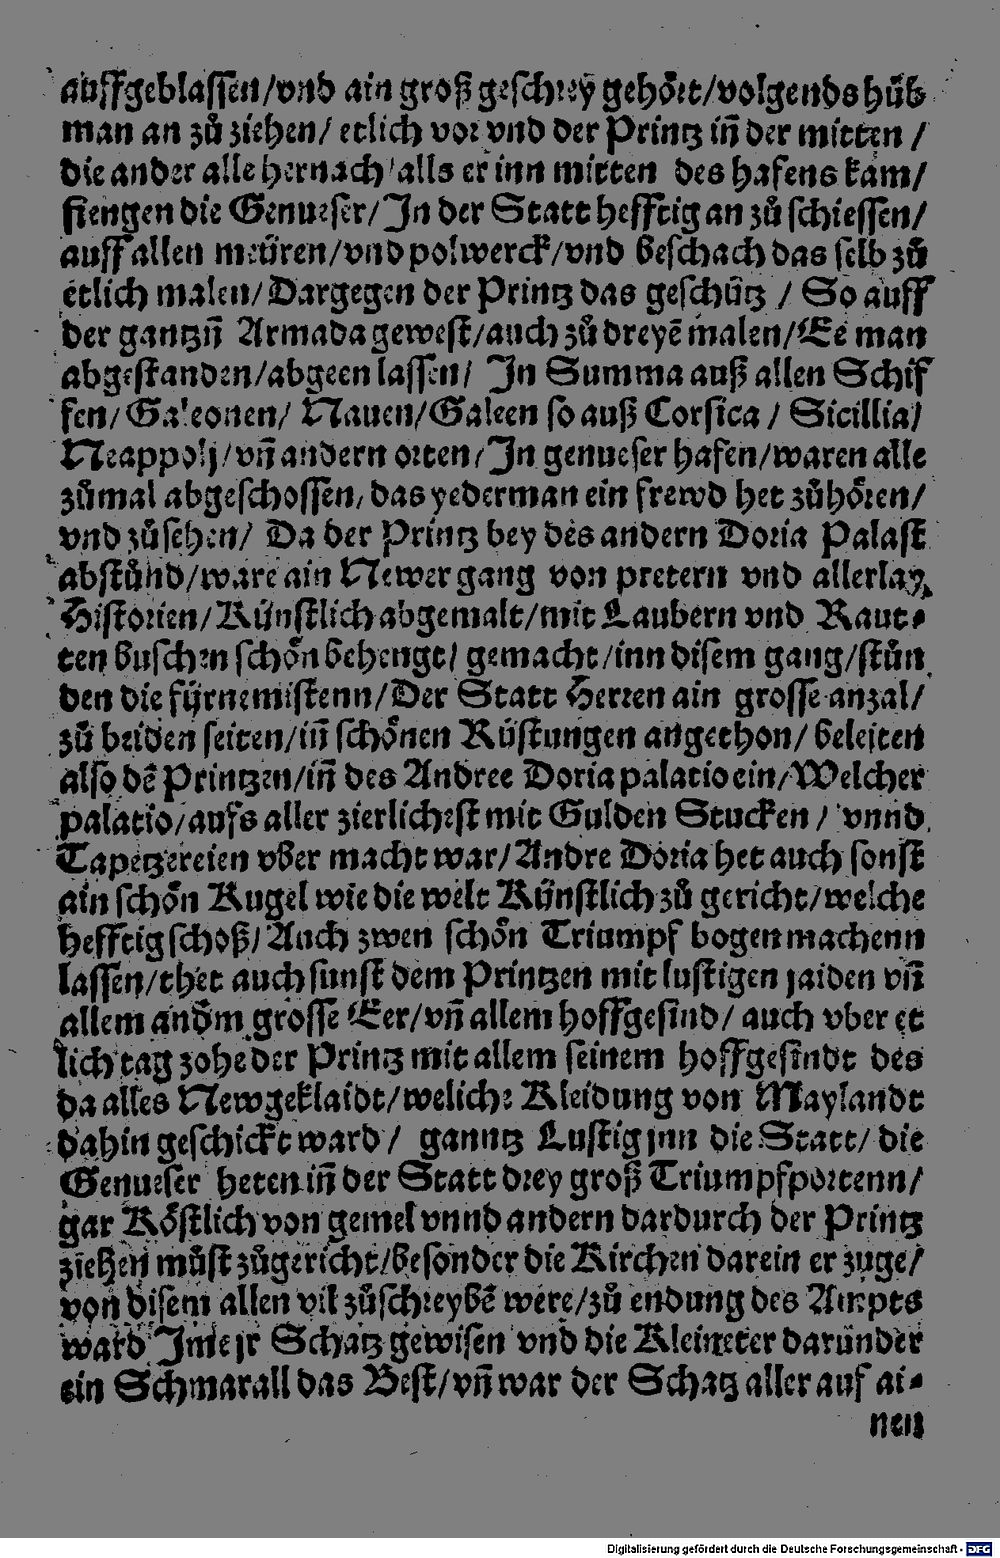 auffgeblassen/vnd ain groß geschrey gehört/volgends hůb
man an zů ziehen/ etlich vor vnd der Printz iñ der mitten /
die ander alle hernach/alls er inn mitten des hafens kam/
fiengen die Genueser/In der Statt hefftig an zů schiessen/
auff allen meüren/vnd polwerck/vnd beschach das selb zů
etlich malen/Dargegen der Printz das geschütz / So auff
der gantzñ Armada gewest/auch zů dreyē malen/Ee man
abgestanden/abgeen lassen/ In Summa auß allen Schif
fen/Galeonen/ Nauen/Galeen so auß Corsica / Sicillia/
Neappolj/vñ andern orten/In genueser hafen/waren alle
zůmal abgeschossen/das yederman ein frewd het zůhören/
vnd zůsehen/ Da der Printz bey des andern Doria Palast
abstůnd/ware ain Newer gang von pretern vnd allerlay
Historien/Künstlich abgemalt/mit Laubern vnd Raut⸗
ten buschen schön behengt/ gemacht/inn disem gang/stůn
den die fürnemistenn/Der Statt Herren ain grosse anzal/
zů beiden seiten/iñ schönen Rüstungen angethon/ beleiten
also dē Printzen/iñ des Andree Doria palatio ein/Welcher
palatio/aufs aller zierlichest mit Gulden Stucken / vnnd
Tapetzereien vber macht war/Andre Doria het auch sonst
ain schön Kugel wie die welt Künstlich zů gericht/welche
hefftig schoß/Auch zwen schön Triumpf bogen machenn
lassen/thet auch sunst dem Printzen mit lustigen jaiden vñ
allem anderm grosse Eer/vñ allem hoffgesind/ auch vber et
lich tag zohe der Printz mit allem seinem hoffgesindt des
da alles Newgeklaidt/weliche Kleidung von Maylandt
dahin geschickt ward/ ganntz Lustig jnn die Statt/ die
Genueser heten iñ der Statt drey groß Triumpfportenn/
gar Köstlich von gemel vnnd andern dardurch der Printz
ziehen můst zůgericht/besonder die Kirchen darein er zuge/
von disem allen vil zůschreybē were/zů endung des Ampts
ward Ime jr Schatz gewisen vnd die Kleineter darunder
ein Schmarall das Best/vñ war der Schatz aller auf ai⸗
nen
Digitalisierung gefördert durch die Deutsche Forschungsgemeinschaft - DFG